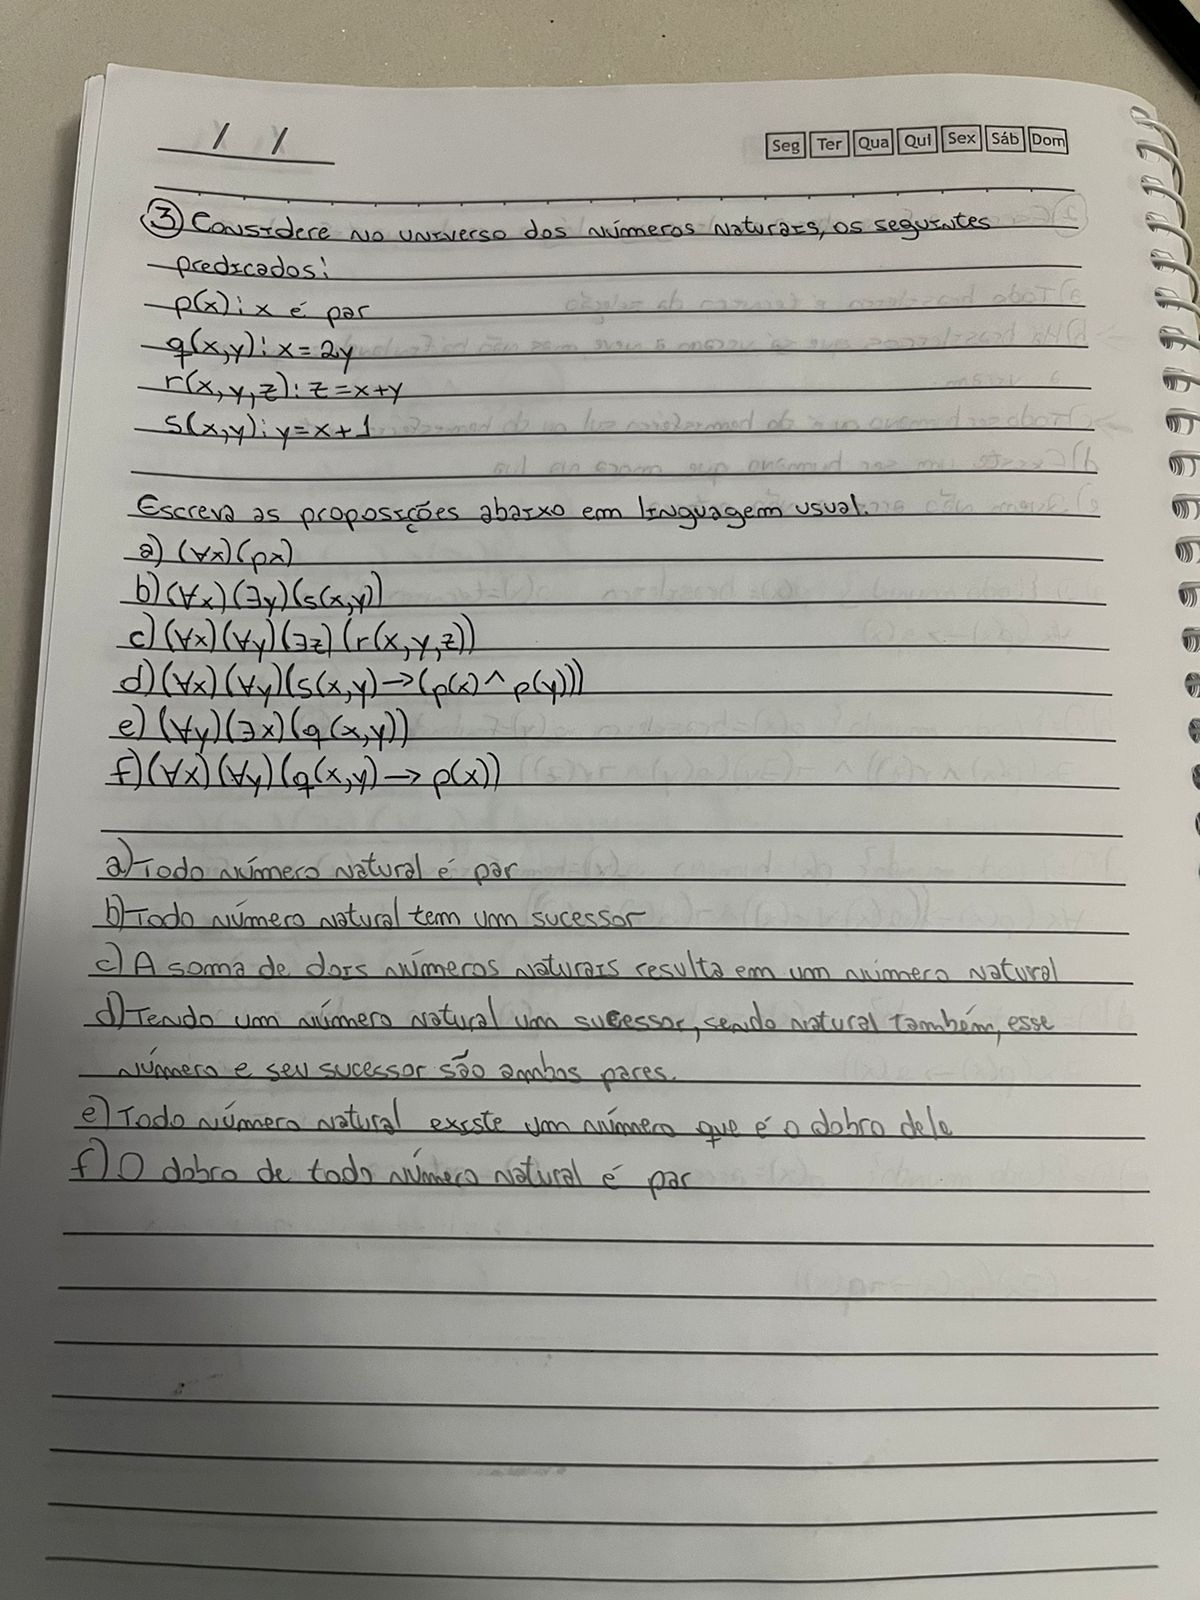 / /
Seg Ter Qua Qui Sex Sáb Dom
3 Considere no universo dos números naturais, os seguintes
predicados:
p(x): x é par
q(x,y): x=2y
r(x,y,z): z=x+y
s(x,y): y=x+1
Escreva as proposições abaixo em linguagem usual.
a) (∀x)(px)
b) (∀x)(∃y)(s(x,y))
c) (∀x)(∀y)(∃z)(r(x,y,z))
d) (∀x)(∀y)(s(x,y)→(p(x)^p(y)))
e) (∀y)(∃x)(q(x,y))
f) (∀x)(∀y)(q(x,y)→p(x))
a) Todo número natural é par
b) Todo número natural tem um sucessor
c) A soma de dois números naturais resulta em um número natural
d) Tendo um número natural um sucessor, sendo natural também, esse
número e seu sucessor são ambos pares.
e) Todo número natural existe um número que é o dobro dele
f) O dobro de todo número natural é par